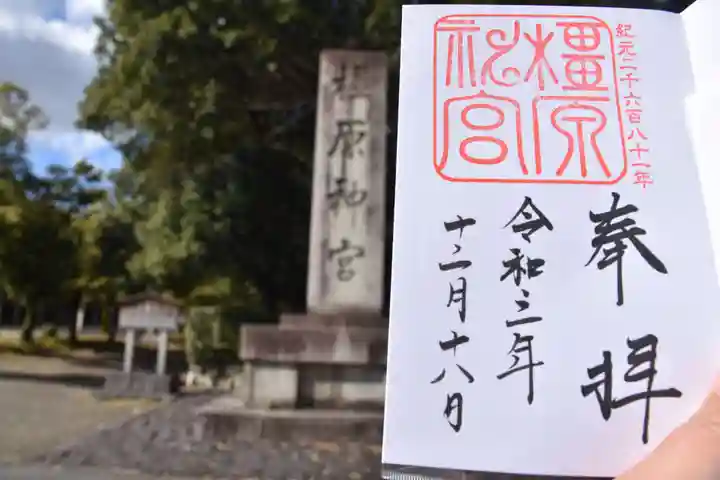 橿原神宮
紀元二千六百八十一年
橿原神宮
奉拝
令和三年
十二月十八日